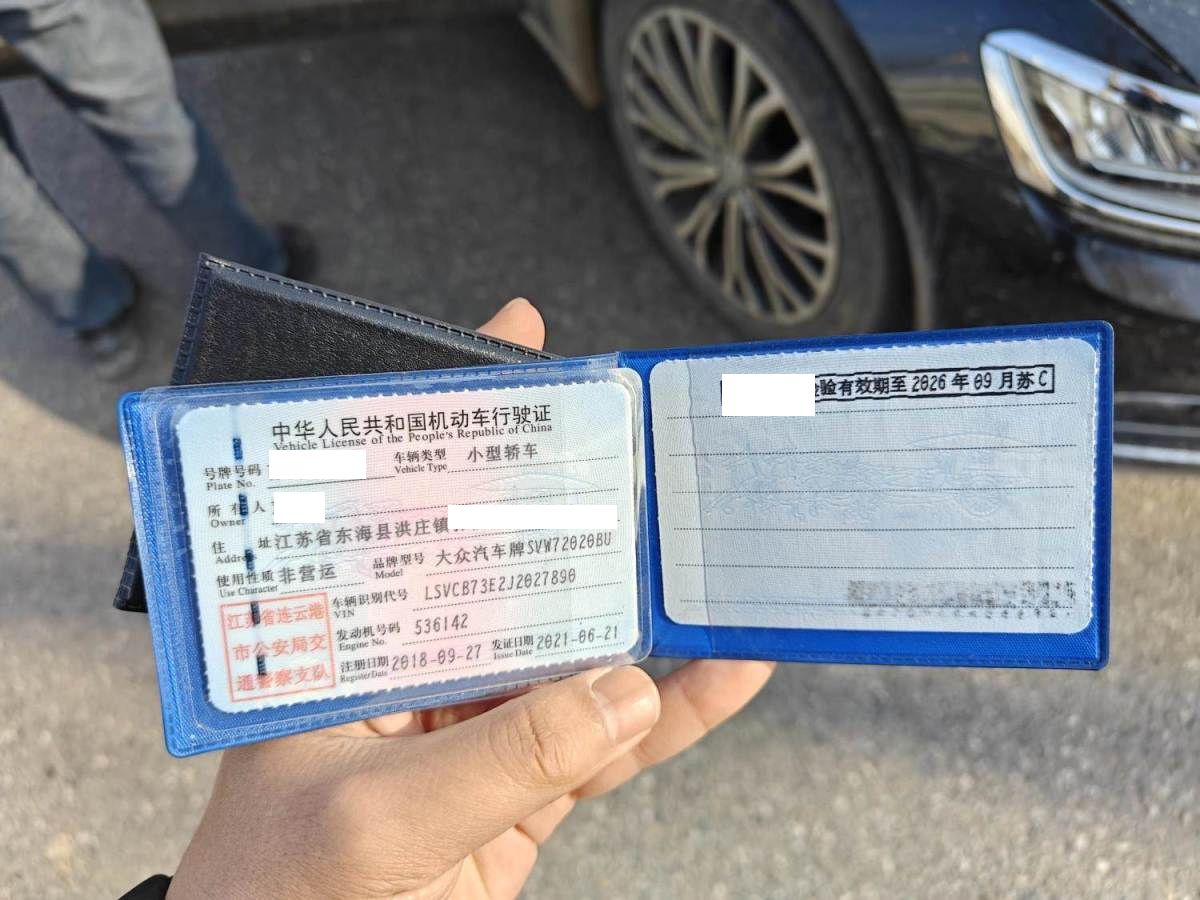 中华人民共和国机动车行驶证
Vehicle License of the People's Republic of China
号牌号码 车辆类型 小型轿车
Plate No. Vehicle Type
所有人
Owner
住址 江苏省东海县洪庄镇
Address
使用性质 非营运 品牌型号 大众汽车牌SVW72020BU
Use Character Model
车辆识别代号 LSVCB73E2J2027890
VIN
发动机号码 536142
Engine No.
注册日期 2018-09-27 发证日期 2021-06-21
Register Date Issue Date
江苏省连云港
市公安局交
通警察支队
验有效期至2026年09月苏C